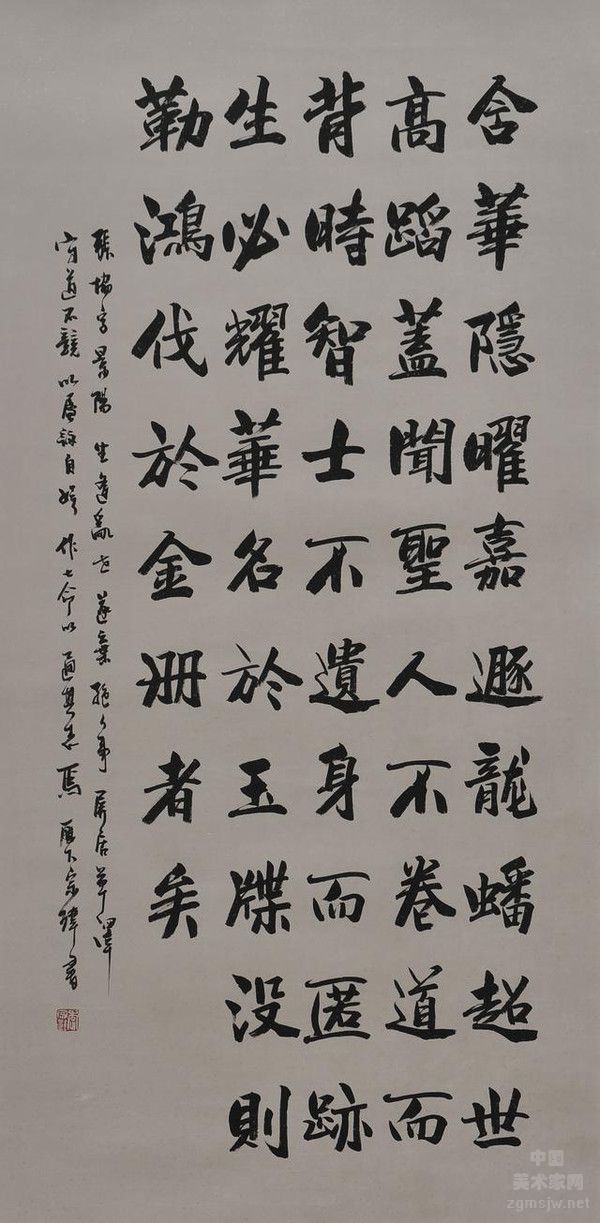 含華隱曜嘉遯龍蟠超世
高蹈蓋聞聖人不卷道而
背時智士不遺身而匿跡
生必耀華名於玉牒没則
勒鴻伐於金册者矣
張協字景陽生逢亂世遂棄絕人事屏居草澤
守道不競以属詠自娛作七命以適其志焉 宗緯書
中国
美术家网
zgmsjw.net